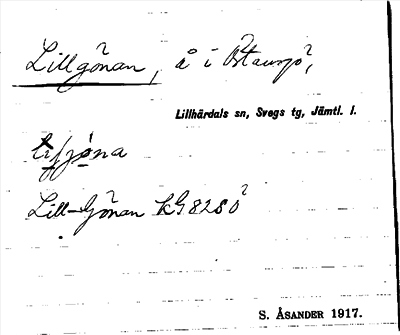 Lillgönan, å i
Lillhärdals sn, Svegs tg, Jämtl. l.
Lill-Gönan KG 8280
S. ÅSANDER 1917.